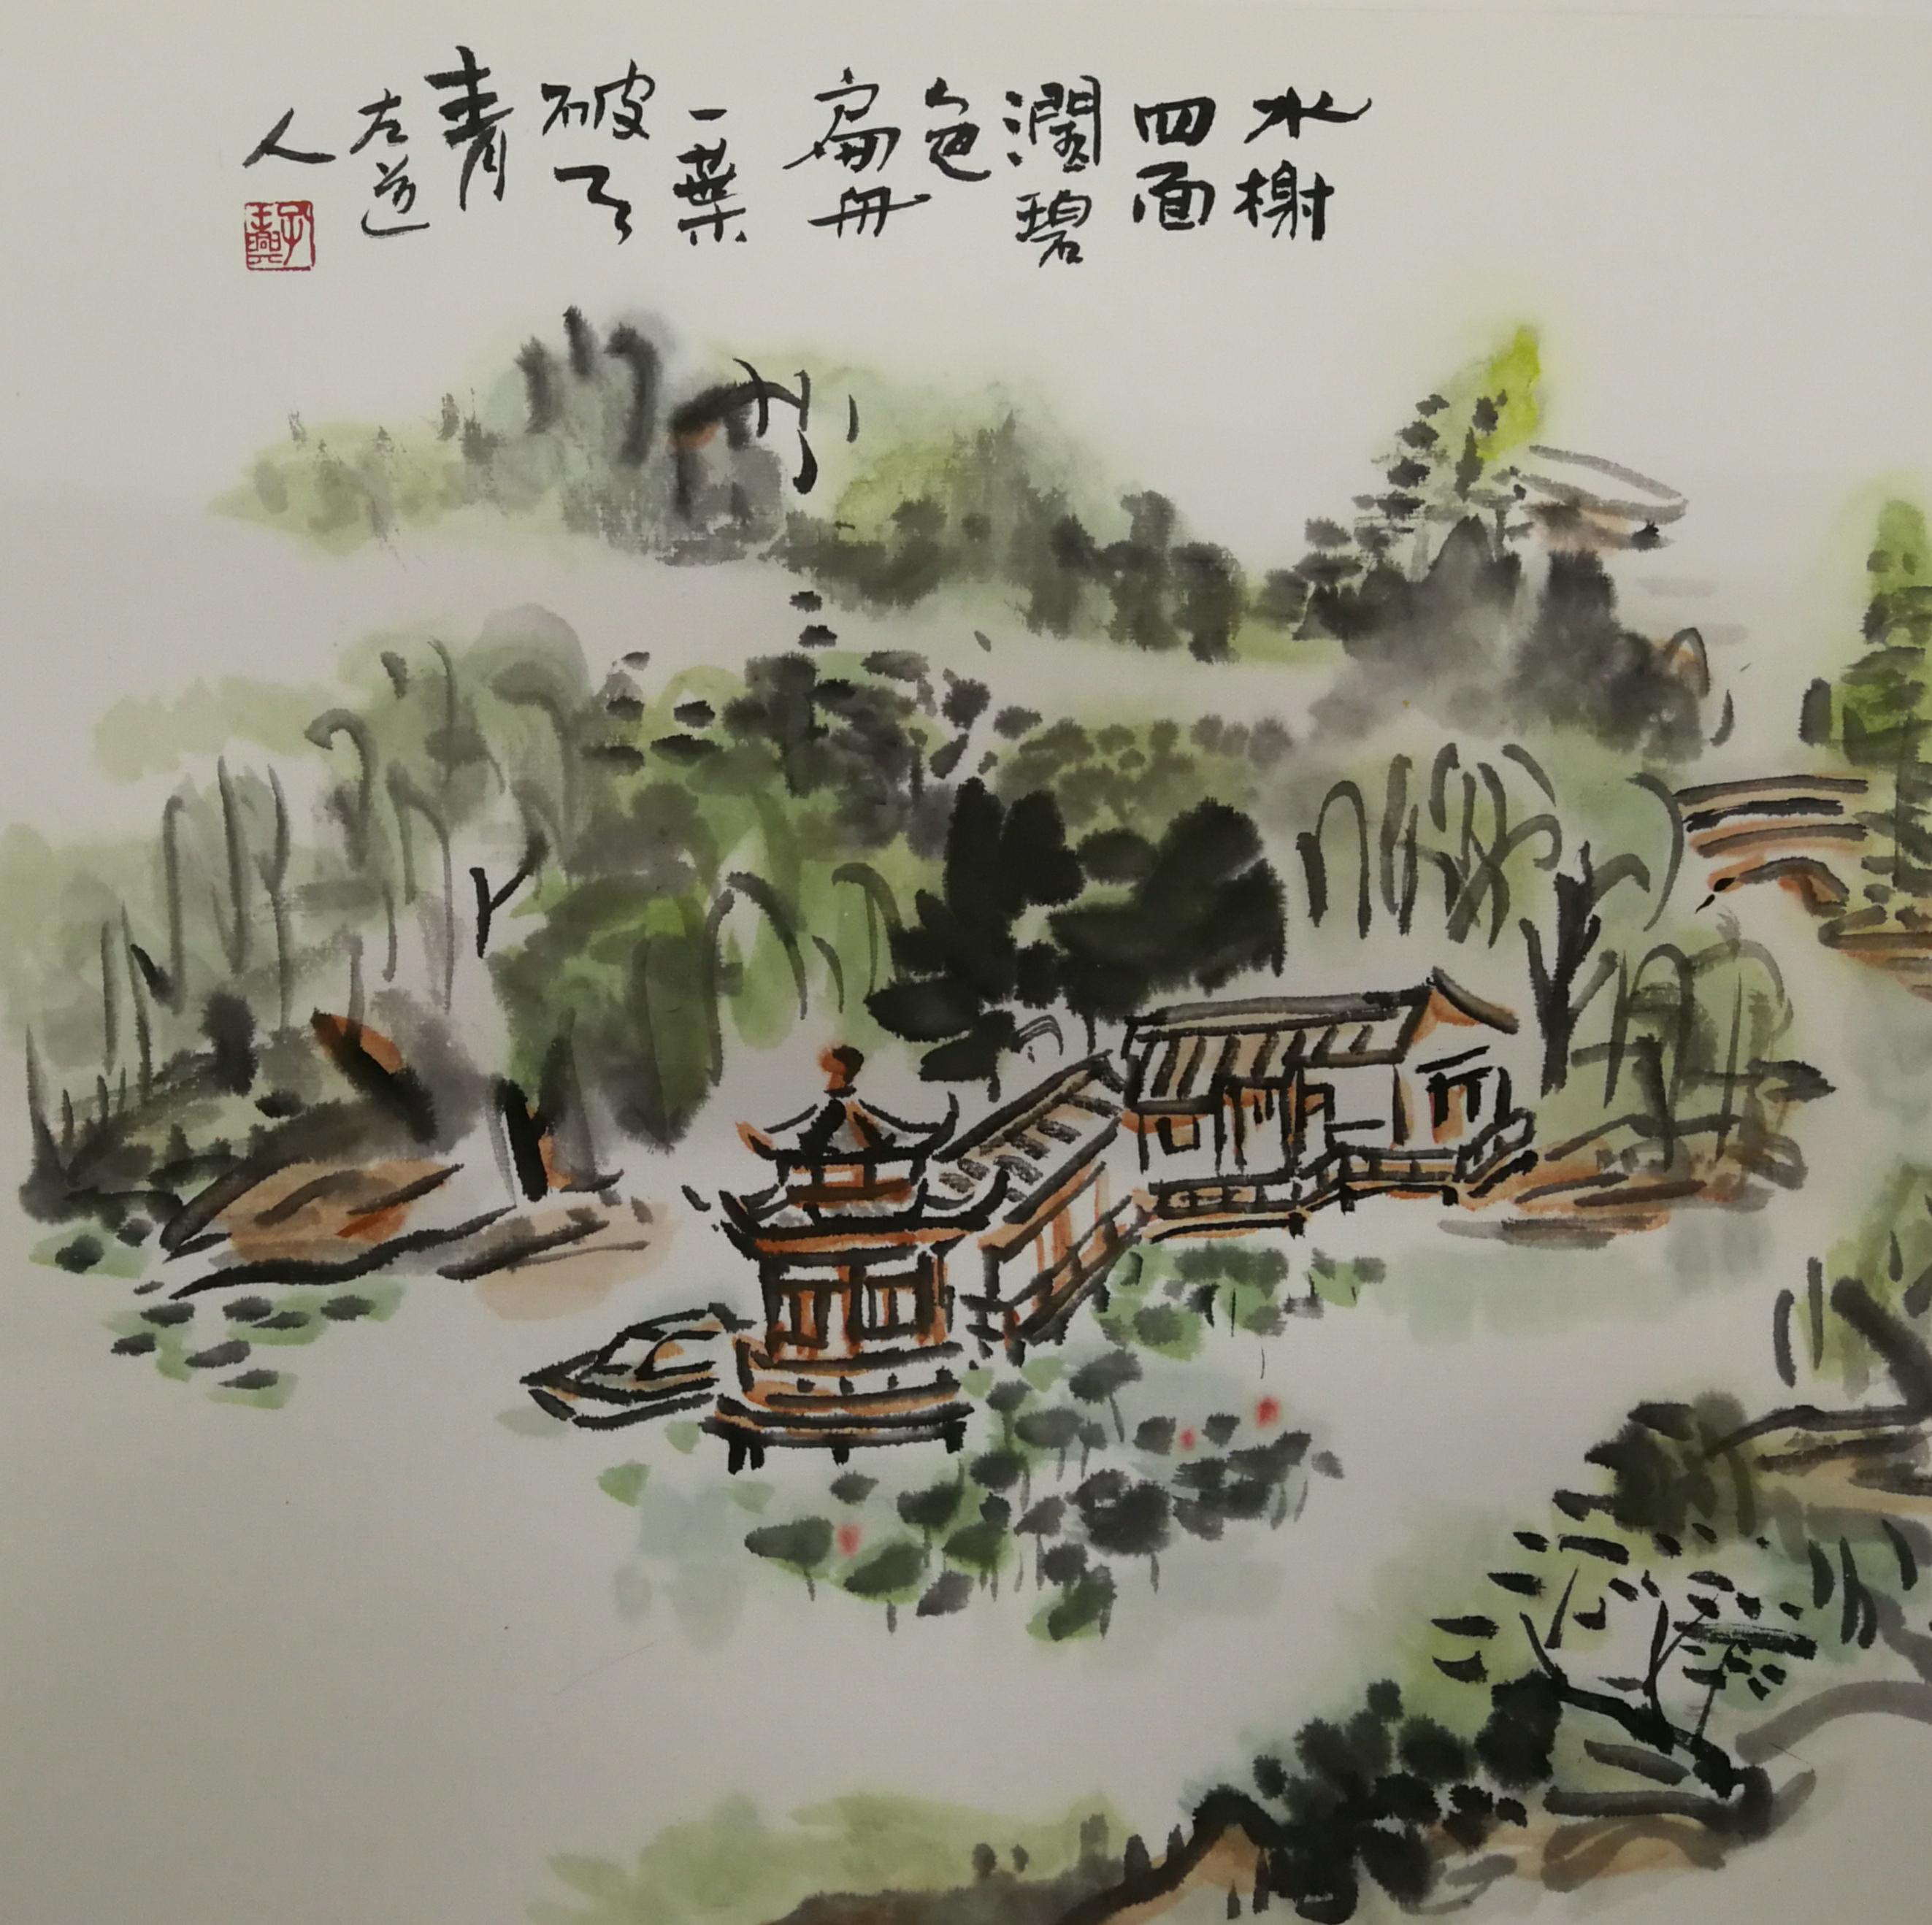 水榭
四面
瀾碧
色
扁舟
一葉
破天
青
左道
人